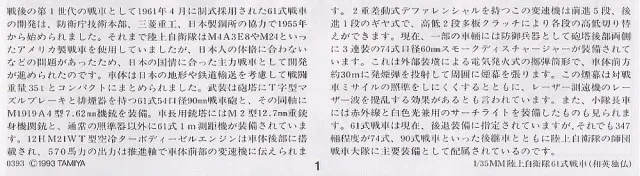 戦後の第1世代の戦車として1961年4月に制式採用された61式戦車
の開発は、防衛庁技術本部、三菱重工、日本製鋼所の協力で1955年
から始められました。それまで陸上自衛隊はM4A3E8やM24といっ
たアメリカ製戦車を使用していましたが、日本人の体格に合わない
などの問題があったため、日本の国情に合った主力戦車として開発
が進められたのです。車体は日本の地形や鉄道輸送を考慮して戦闘
重量35tとコンパクトにまとめられました。武装は砲塔にT字型マ
ズルブレーキと排煙器を持つ61式54口径90mm戦車砲と、その同軸に
M1919A4型7.62mm機銃を装備。車長用銃塔にはM2型12.7mm重銃
身機関銃と、通常の照準器以外に61式1m測距機が装備されています。
12HM21WT型空冷ターボディーゼルエンジンは車体後部に搭
載され、570馬力の出力は推進軸で車体前部の変速機に伝えられま
0393 ©1993 TAMIYA
す。2重差動式デファレンシャルを持つこの変速機は前進5段、後
進1段のギヤ式で、高低2段多板クラッチにより各段の高低切り替
えができます。現在、一部の車輌には防御兵器として砲塔後部両側
に3連装の74式口径60mmスモークディスチャージャーが装備されて
います。これは外部装填による電気発火式の擲弾筒形で、車体前方
約30mに発煙弾を投射して周囲に煙幕を張ります。この煙幕は対戦
車ミサイルの照準をしにくくするとともに、レーザー測遠機のレー
ザー波を攪乱する効果があるとも言われています。また、小隊長車
には赤外線と白色光兼用のサーチライトを装備したものも見られま
す。61式戦車は現在、後退装備に指定されていますが、それでも347
輌程度が74式、90式戦車といった後継とともに陸上自衛隊の師団
戦車大隊に主要装備として配属されているのです。
1
1/35MM陸上自衛隊61式戦車(和英独仏)